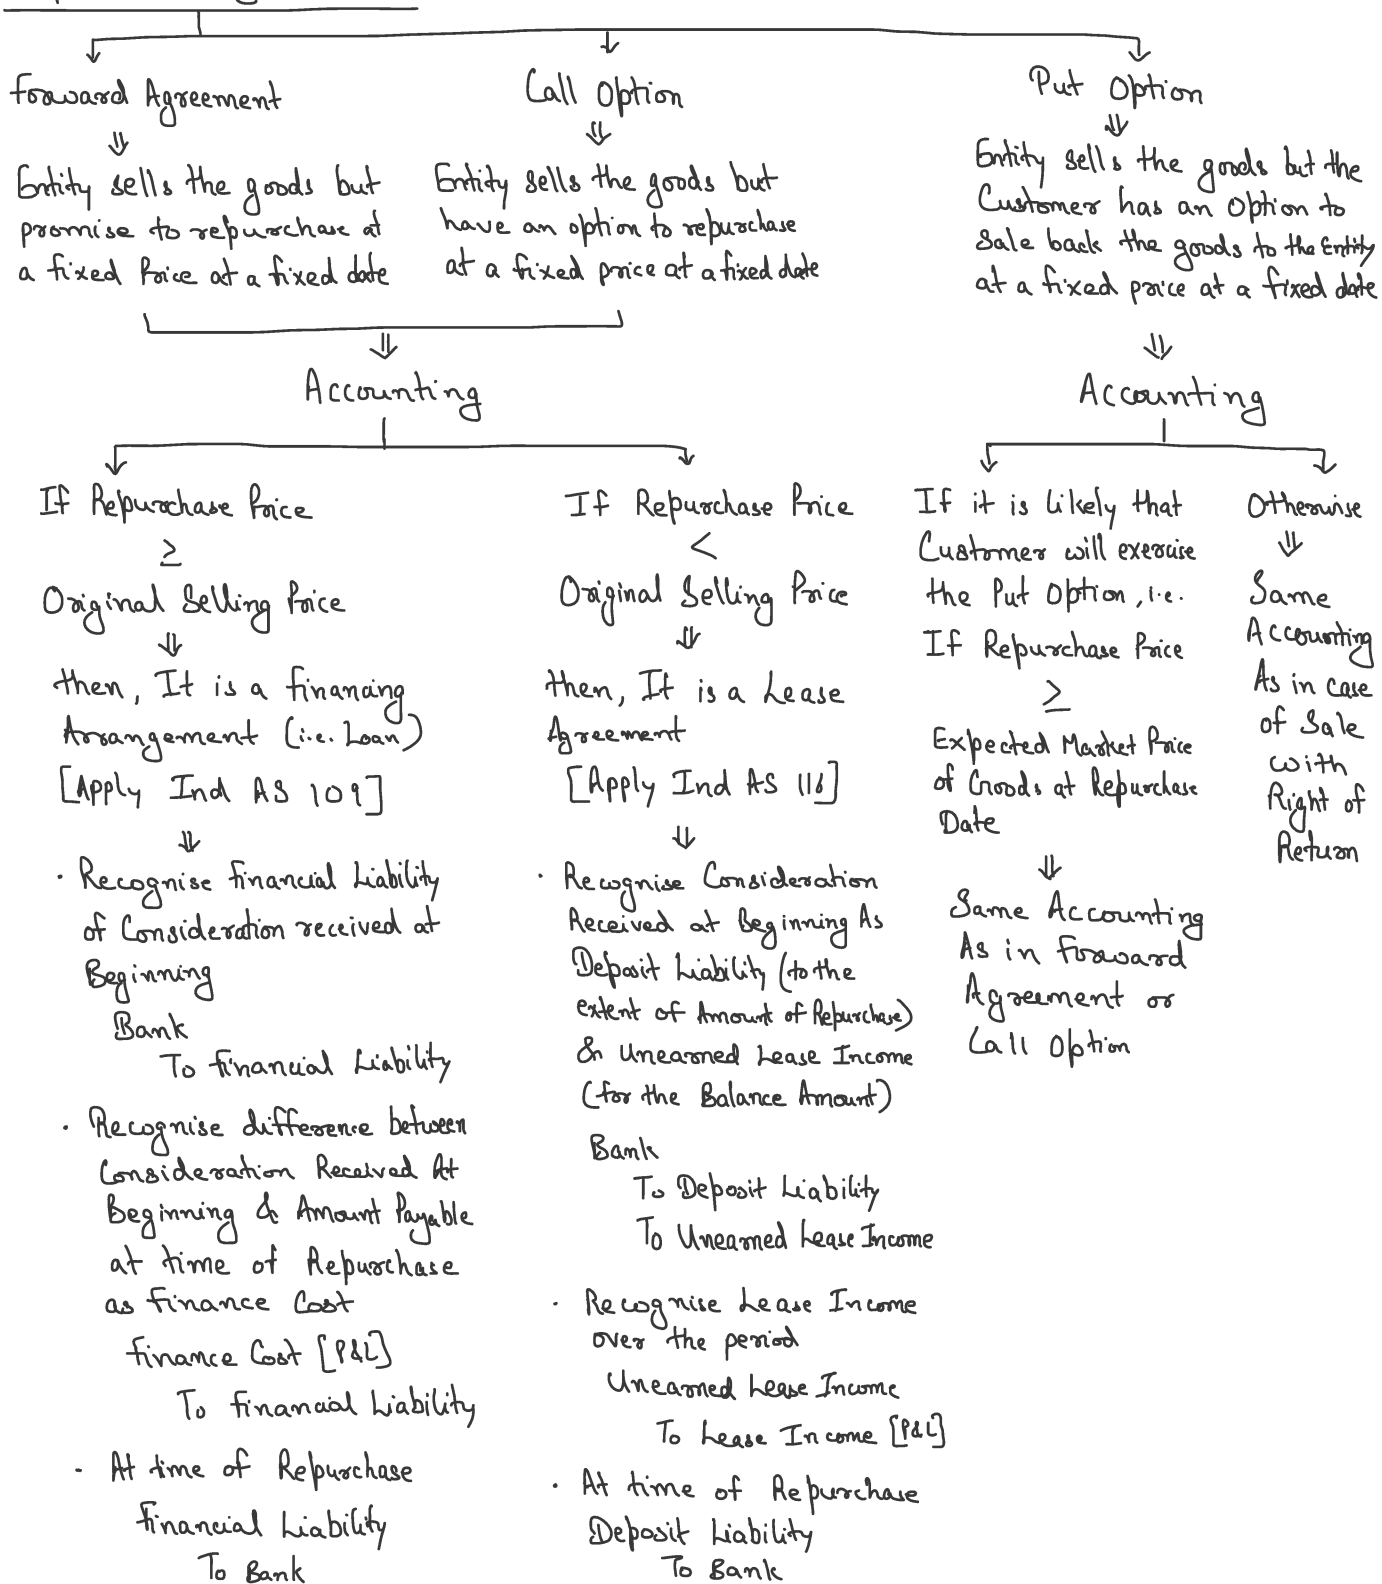 Forward Agreement
⇓
Entity sells the goods but
promise to repurchase at
a fixed Price at a fixed date
Call Option
⇓
Entity sells the goods but
have an option to repurchase
at a fixed price at a fixed date
Put Option
⇓
Entity sells the goods but the
Customer has an Option to
Sale back the goods to the Entity
at a fixed price at a fixed date
⇓
Accounting
If Repurchase Price
≥
Original Selling Price
⇓
then, It is a financing
Arrangement (i.e. Loan)
[Apply Ind AS 109]
⇓
· Recognise financial Liability
of Consideration received at
Beginning
Bank
To financial Liability
· Recognise difference between
Consideration Received At
Beginning & Amount Payable
at time of Repurchase
as finance Cost
finance Cost [P&L]
To financial Liability
· At time of Repurchase
financial Liability
To Bank
If Repurchase Price
<
Original Selling Price
⇓
then, It is a Lease
Agreement
[Apply Ind AS 116]
⇓
· Recognise Consideration
Received at Beginning As
Deposit Liability (to the
extent of Amount of Repurchase)
& Unearned Lease Income
(for the Balance Amount)
Bank
To Deposit Liability
To Unearned Lease Income
· Recognise Lease Income
over the period
Unearned Lease Income
To Lease Income [P&L]
· At time of Repurchase
Deposit Liability
To Bank
⇓
Accounting
If it is likely that
Customer will exercise
the Put Option, i.e.
If Repurchase Price
≥
Expected Market Price
of Goods at Repurchase
Date
⇓
Same Accounting
As in forward
Agreement or
Call Option
Otherwise
⇓
Same
Accounting
As in case
of Sale
with
Right of
Return